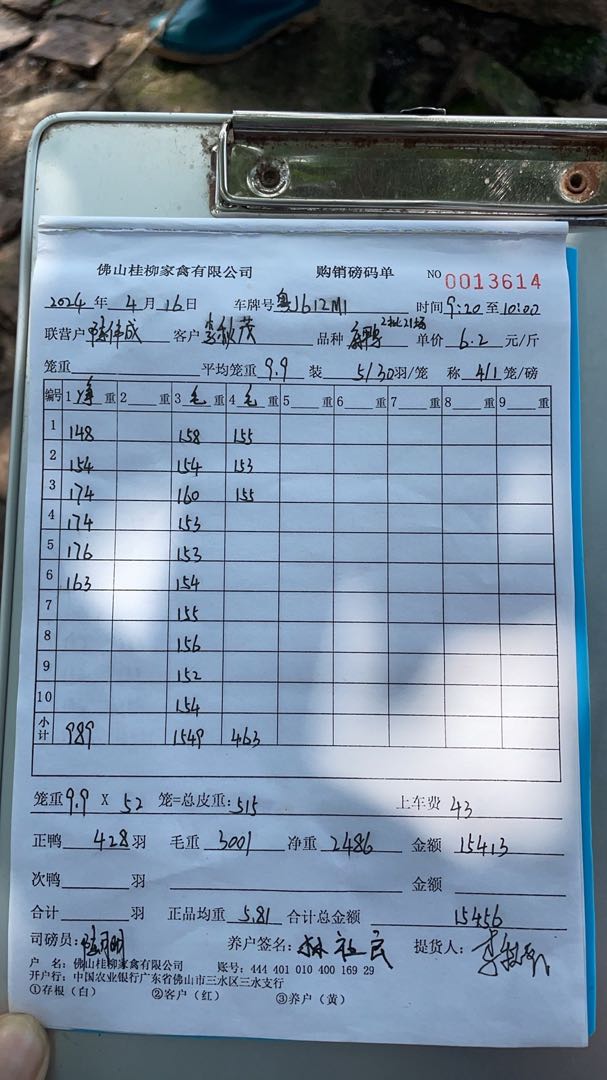 佛山桂柳家禽有限公司 购销磅码单 NO 0013614
2024 年 4 月 16 日 车牌号 粤J612M1 时间 9:20 至 10:00
联营户 伟成 客户 李秋茂 品种 2批21场 单价 6.2 元/斤
笼重 平均笼重 9.9 装 5/30 羽/笼 称 4/1 笼/磅
编号 1 净 重 2 重 3 毛 重 4 毛 重 5 重 6 重 7 重 8 重 9 重
1 148 158 155
2 154 154 153
3 174 160 155
4 174 153
5 176 153
6 163 154
7 155
8 156
9 152
10 154
小计 989 1549 463
笼重 9.9 X 52 笼=总皮重: 515 上车费 43
正鸭 428 羽 毛重 3001 净重 2486 金额 15413
次鸭 羽 金额
合计 羽 正品均重 5.81 合计总金额 15456
司磅员: 明 养户签名: 林社民 提货人: 李
户 名: 佛山桂柳家禽有限公司 账号: 444 401 010 400 169 29
开户行: 中国农业银行广东省佛山市三水区三水支行
①存根(白) ②客户(红) ③养户(黄)